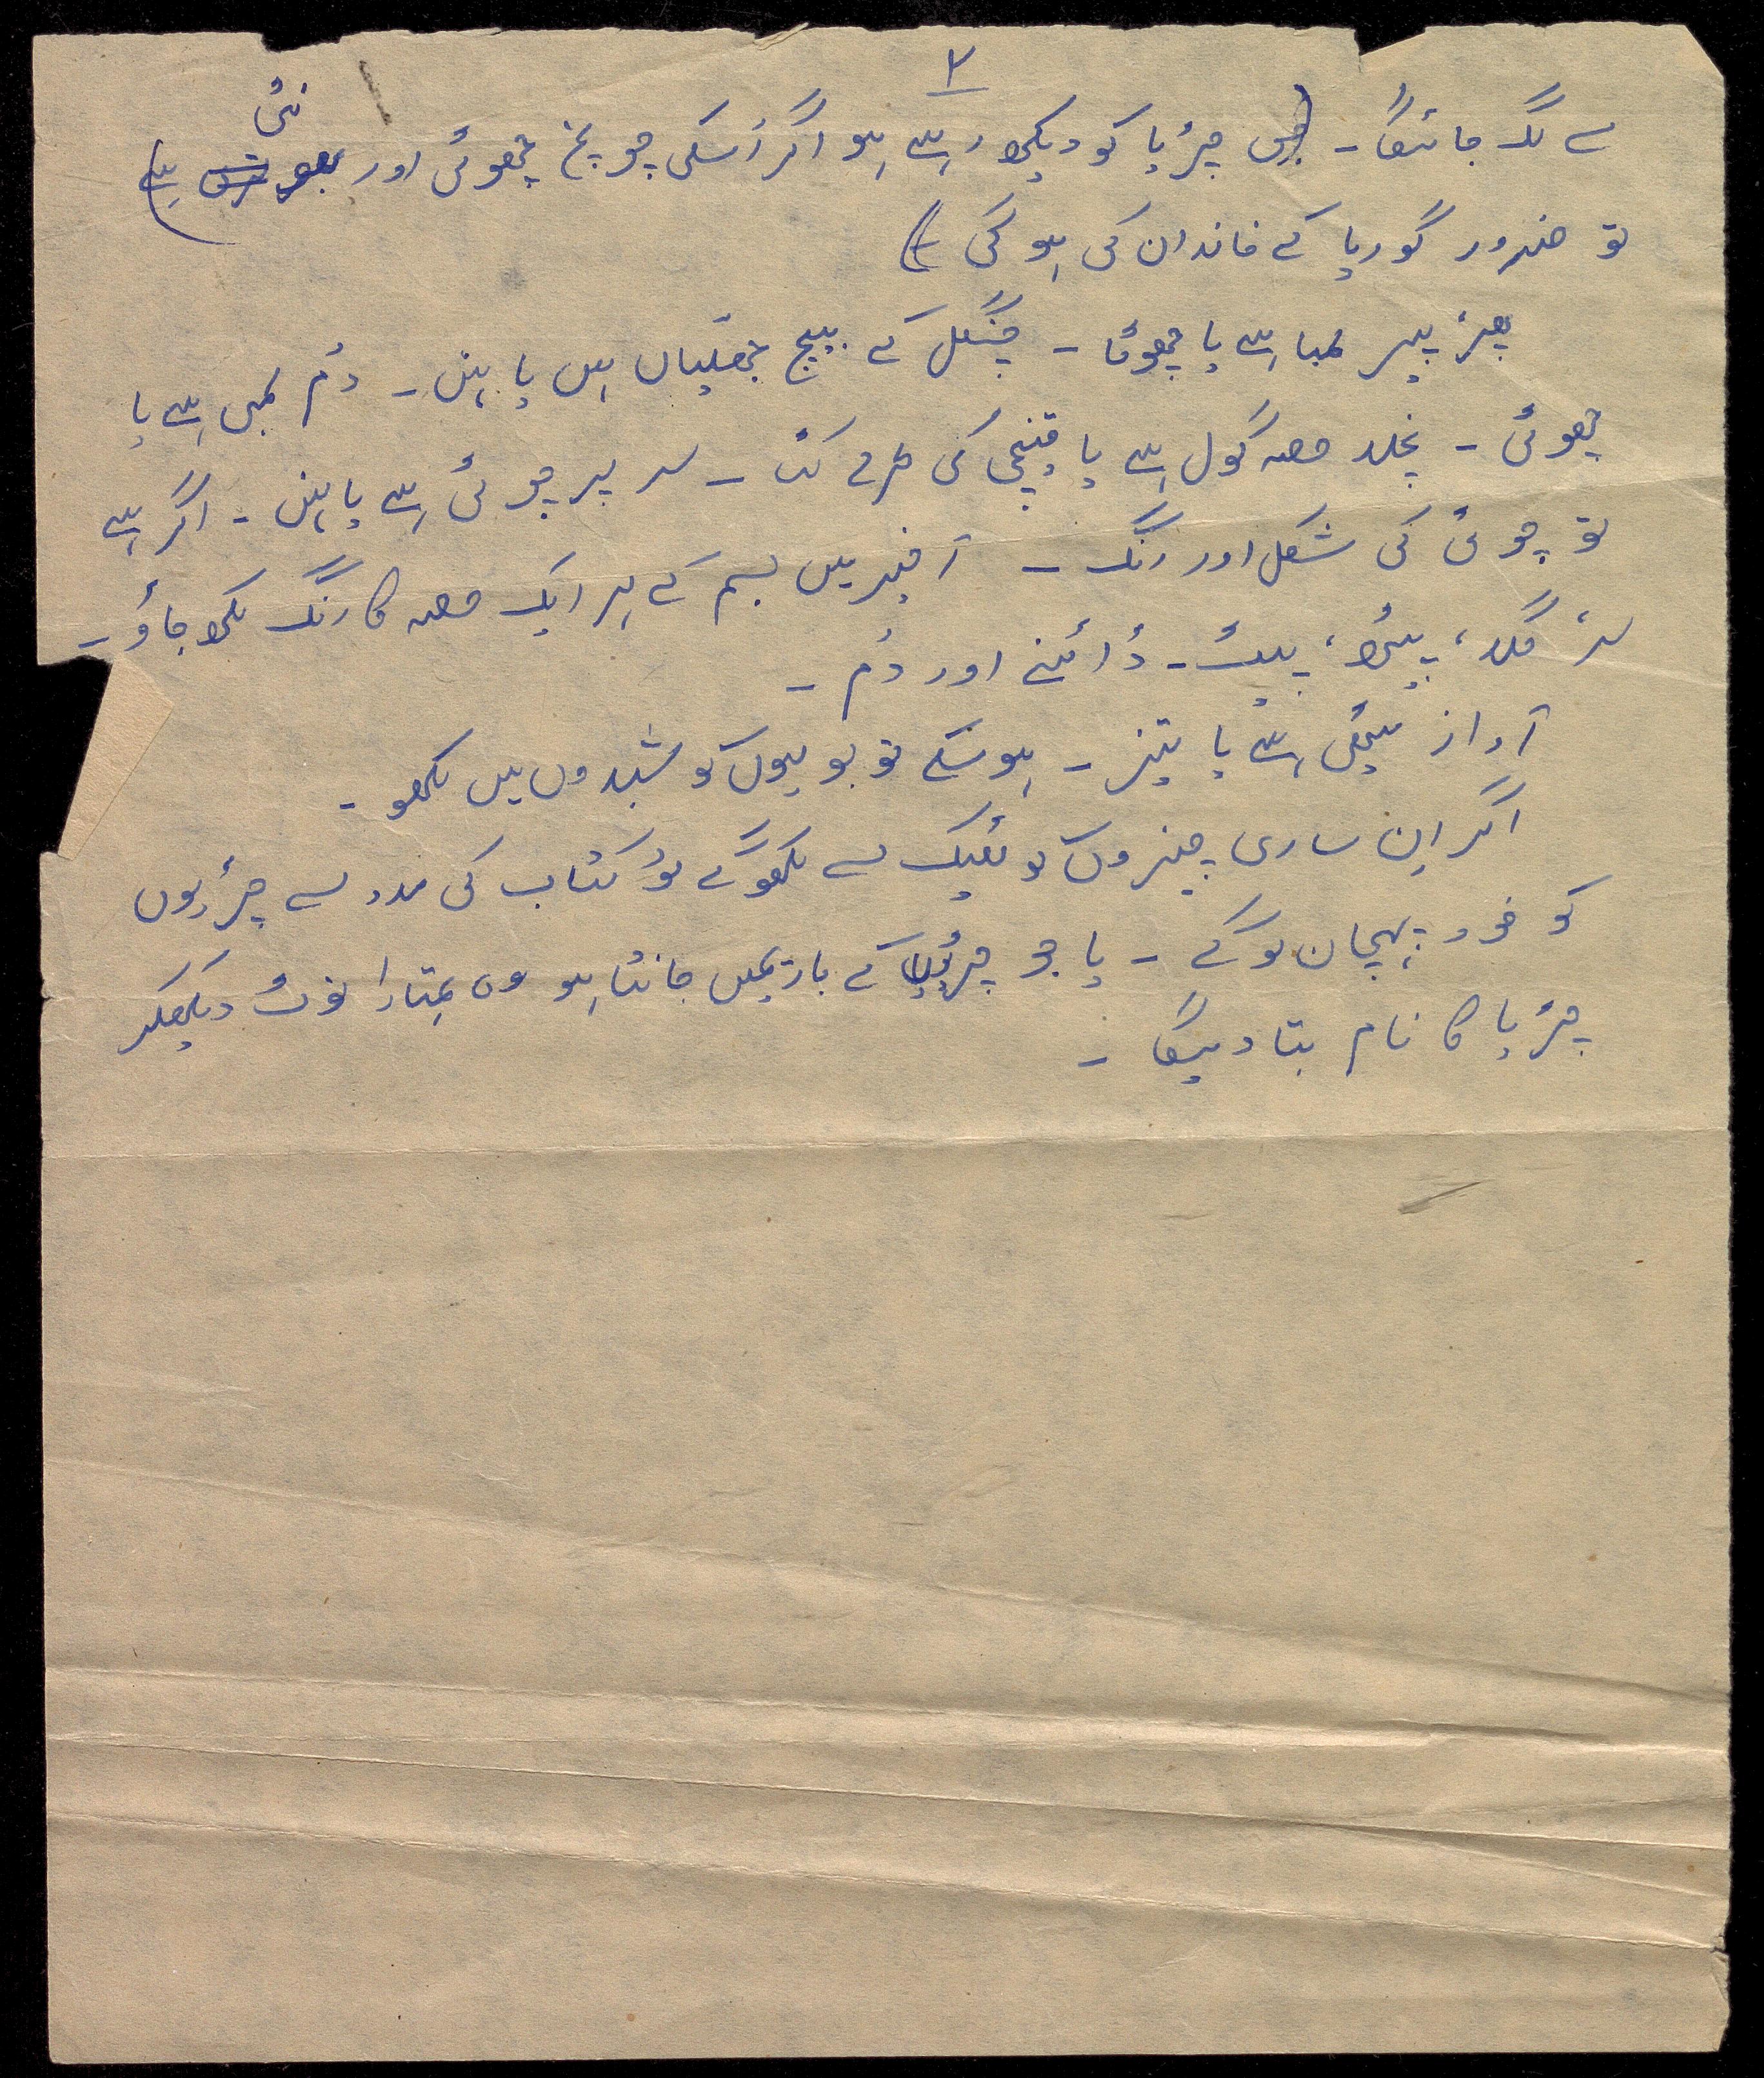 ۲
سے لگ جائیگا۔ (جس چڑیا کو دیکھ رہے ہو اگر اسکی چونچ چھوٹی اور موٹی ہے)
تو ضرور گوریا کے خاندان کی ہو گی)
پھر پیر لمبا ہے یا چھوٹا۔ چنگل کے بیچ جھلیاں ہیں یا نہیں۔ دُم لمبی ہے یا
چھوٹی۔ نچلا حصہ گول ہے یا قینچی کی طرح کٹا۔ سر پر چوٹی ہے یا نہیں۔ اگر ہے
تو چوٹی کی شکل اور رنگ۔ آخیر میں جسم کے ہر ایک حصہ کا رنگ لکھ جاؤ۔
سر، گلا، پیٹھ، پیٹ۔ ڈائنے اور دُم۔
آواز میٹھی ہے یا تیز۔ ہو سکے تو بولیوں کو شبدوں میں لکھو۔
اگر اِن ساری چیزوں کو ٹھیک سے لکھوگے تو کتاب کی مدد سے چڑیوں
کو خود پہچان لوگے۔ یا جو چڑیوں کے بارےمیں جانتا ہو وہ تمہارا نوٹ دیکھکر
چڑیا کا نام بتا دیگا۔